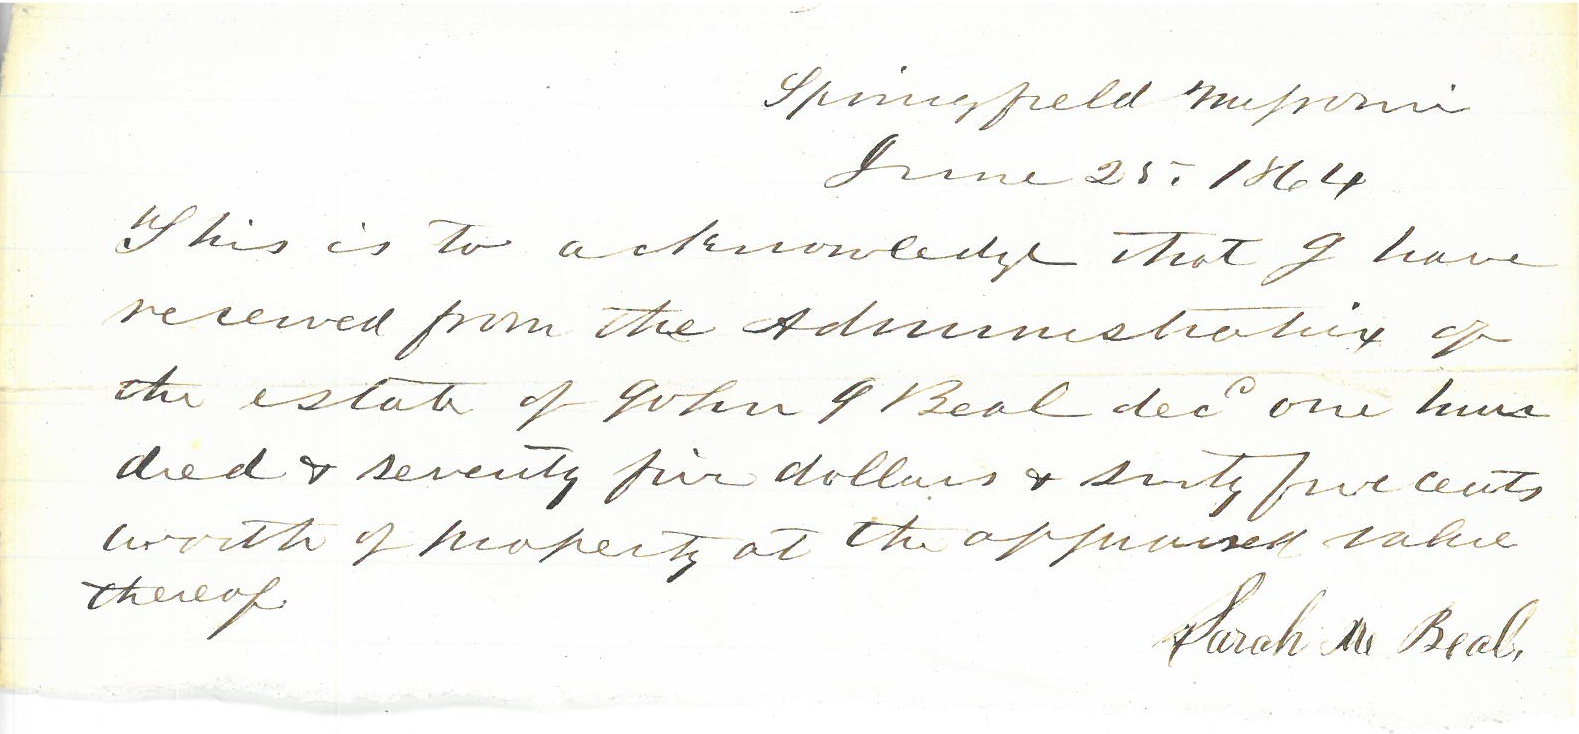 Springfield Missouri
June 25. 1864
This is to acknowledge that I have
received from the Administratrix of
the estate of John G Beal decd one hun
dred & seventy five dollars & sixty five cents
worth of property at the appraised value
thereof
Sarah M Beal.